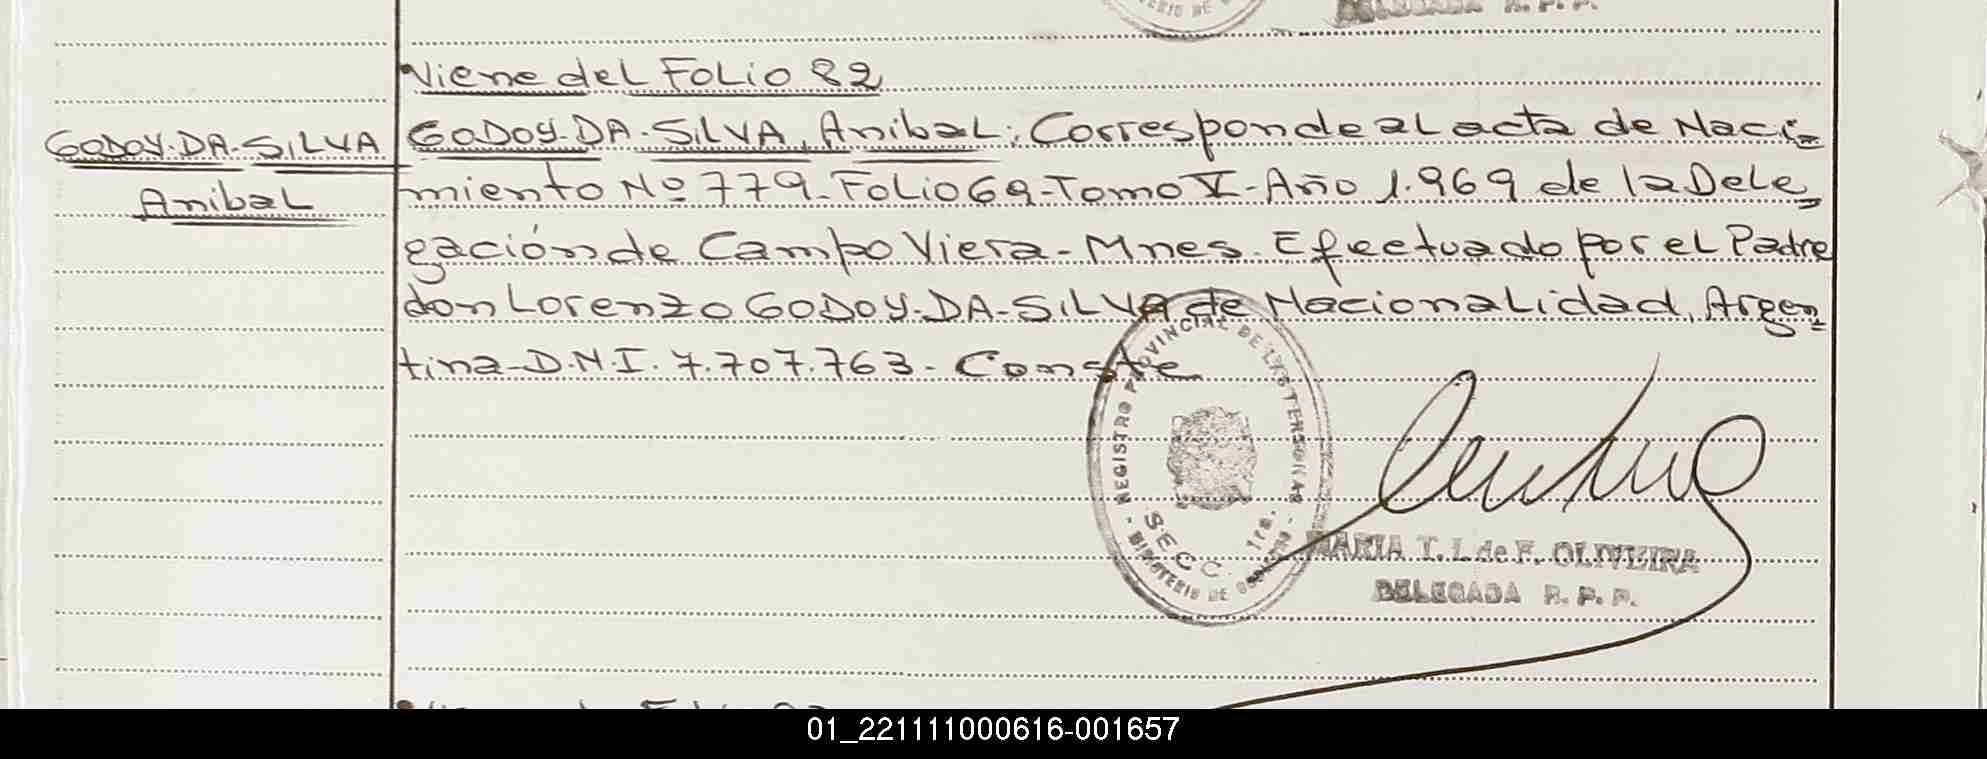 DELEGADA R. P. P.
Viene del Folio 82
GODOY-DA-SILVA
Anibal
GODOY-DA-SILVA, Anibal: Corresponde al acta de Naci-
miento Nº 779-Folio 69-Tomo V-Año 1.969 de la Dele-
gación de Campo Viera-Mnes. Efectuado por el Padre
don Lorenzo GODOY-DA-SILVA de Nacionalidad, Argen-
tina-D.N.I. 7.707.763- Conste
REGISTRO PROVINCIAL DE LAS PERSONAS
SECC. 1ra.
- MINISTERIO DE GOBIERNO -
MARIA T. L. de F. OLIVEIRA
DELEGADA R. P. P.
01_221111000616-001657